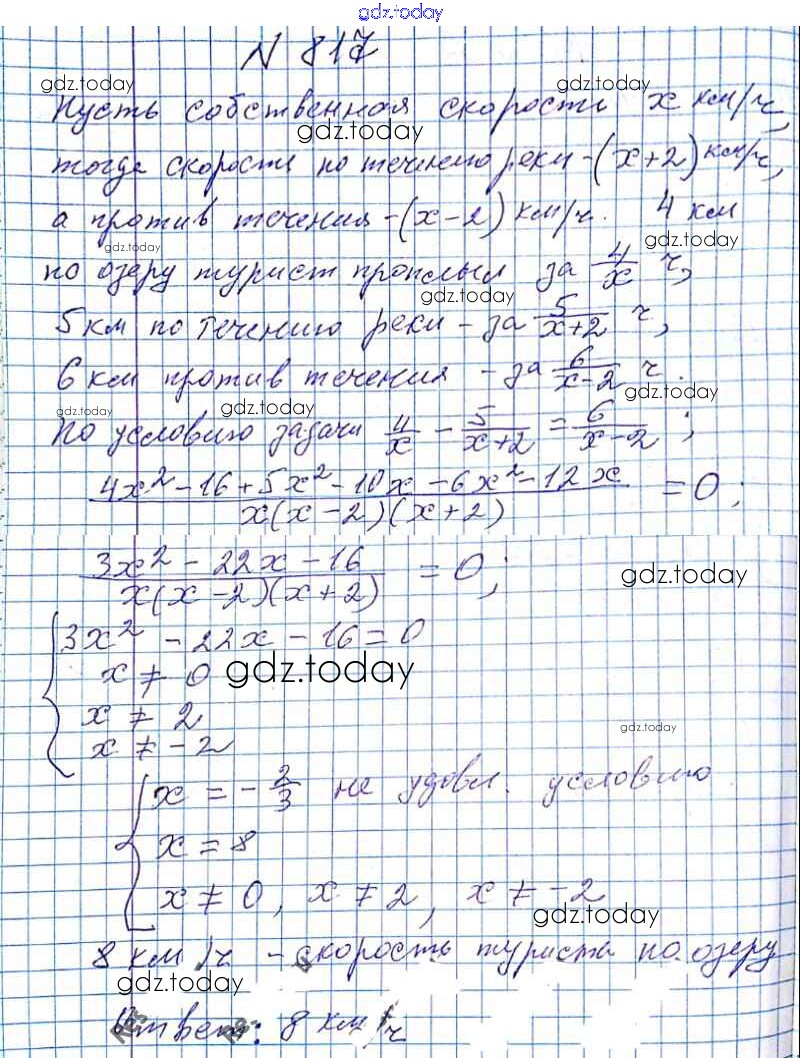 gdz.today
N 817
gdz.today gdz.today
Пусть собственная скорость x км/ч,
gdz.today
тогда скорость по течению реки - (x+2) км/ч,
а против течения - (x-2) км/ч. 4 км
gdz.today gdz.today
по озеру турист проплыл за 4/x ч,
gdz.today
5 км по течению реки - за 5/(x+2) ч,
6 км против течения - за 6/(x-2) ч.
gdz.today gdz.today gdz.today
По условию задачи 4/x - 5/(x+2) = 6/(x-2);
(4x² - 16 + 5x² - 10x - 6x² - 12x)/(x(x-2)(x+2)) = 0;
(3x² - 22x - 16)/(x(x-2)(x+2)) = 0;
gdz.today
3x² - 22x - 16 = 0
x ≠ 0
gdz.today
x ≠ 2
gdz.today
x ≠ -2
x = -2/3 не удовл. условию
x = 8
x ≠ 0, x ≠ 2, x ≠ -2
gdz.today
8 км/ч - скорость туриста по озеру
gdz.today
Ответ: 8 км/ч